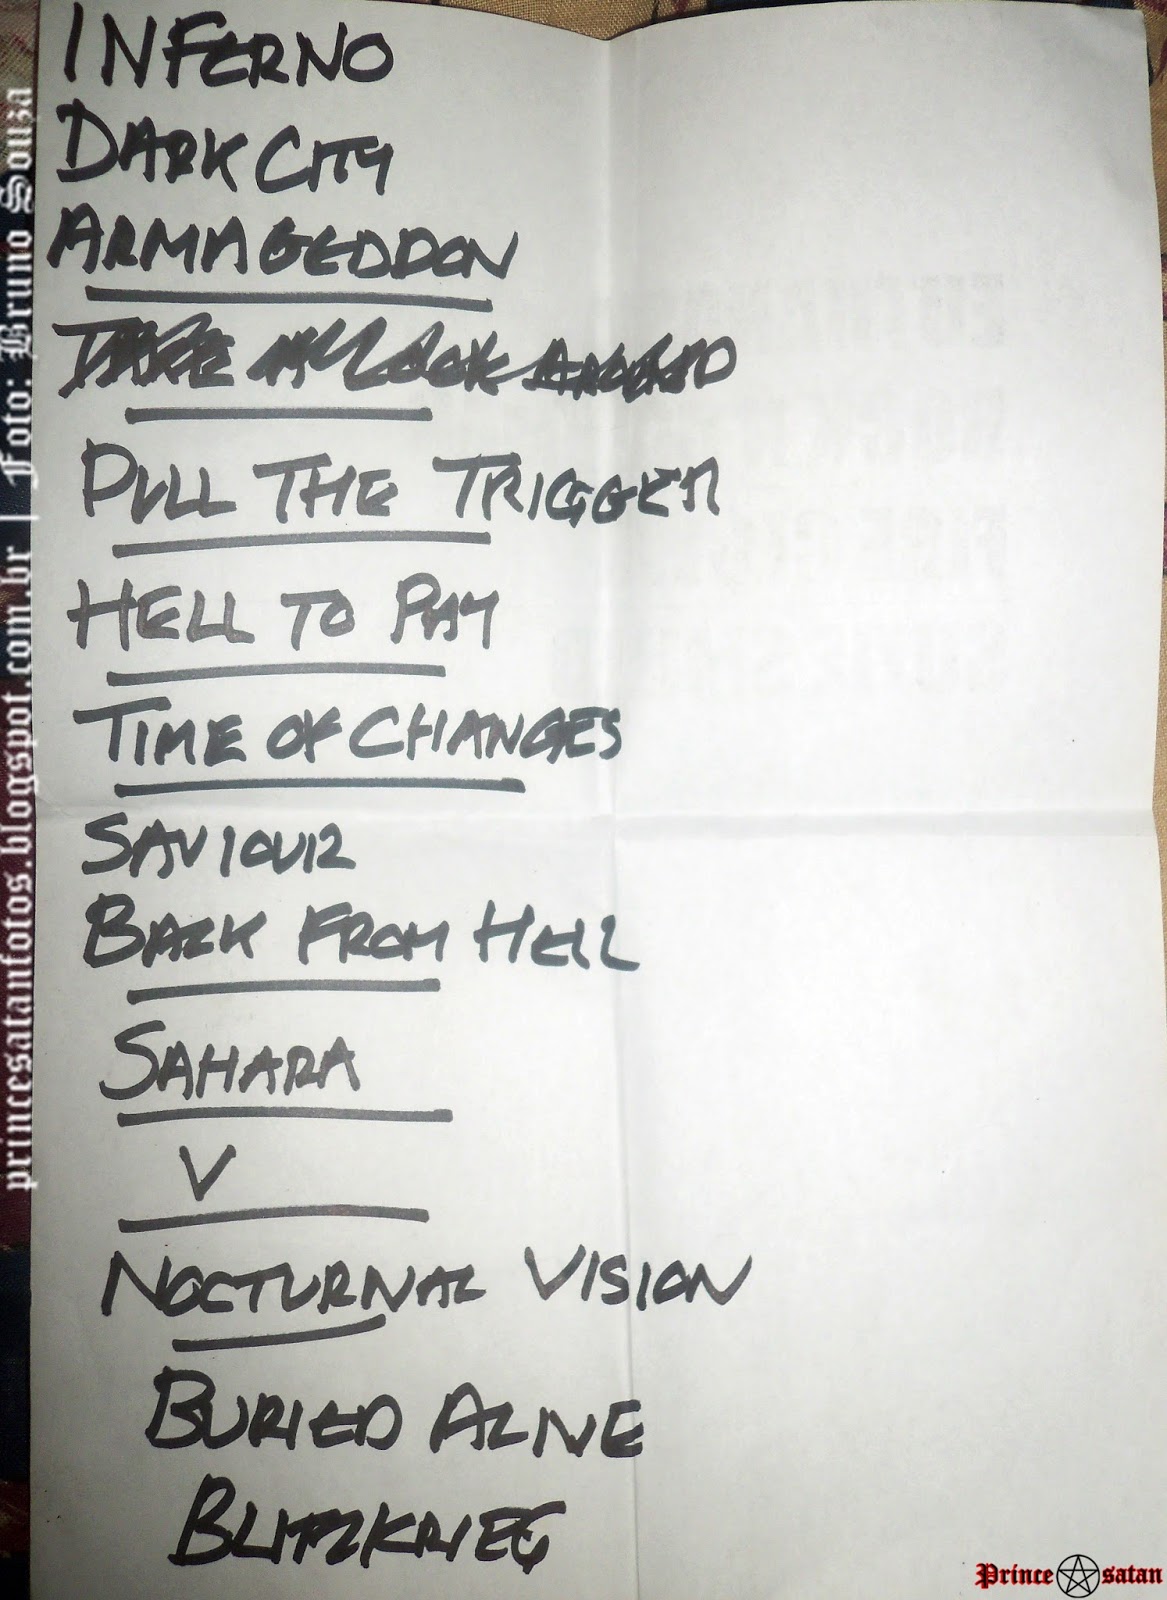 INFERNO
DARK CITY
ARMAGEDDON
TAKE A LOOK AROUND
PULL THE TRIGGER
HELL TO PAY
TIME OF CHANGES
SAVIOUR
BACK FROM HELL
SAHARA
V
NOCTURNAL VISION
BURIED ALIVE
BLITZKRIEG
princesatanfotos.blogspot.com.br | Foto: Bruno Souza
Prince satan